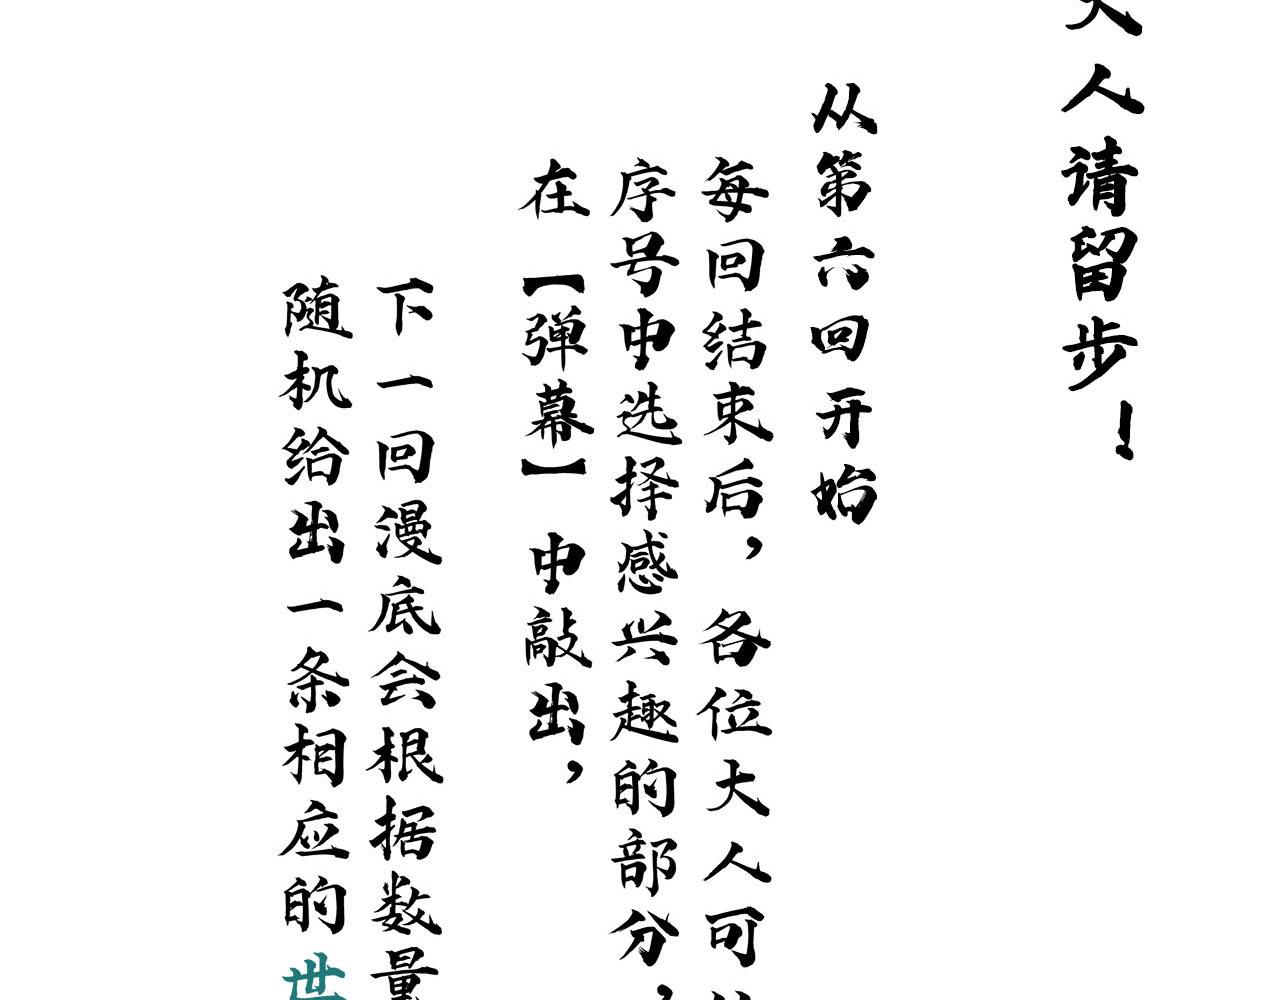 大人请留步！
从第六回开始
每回结束后，各位大人可
序号中选择感兴趣的部分，
在【弹幕】中敲出，
下一回漫底会根据数量
随机给出一条相应的世